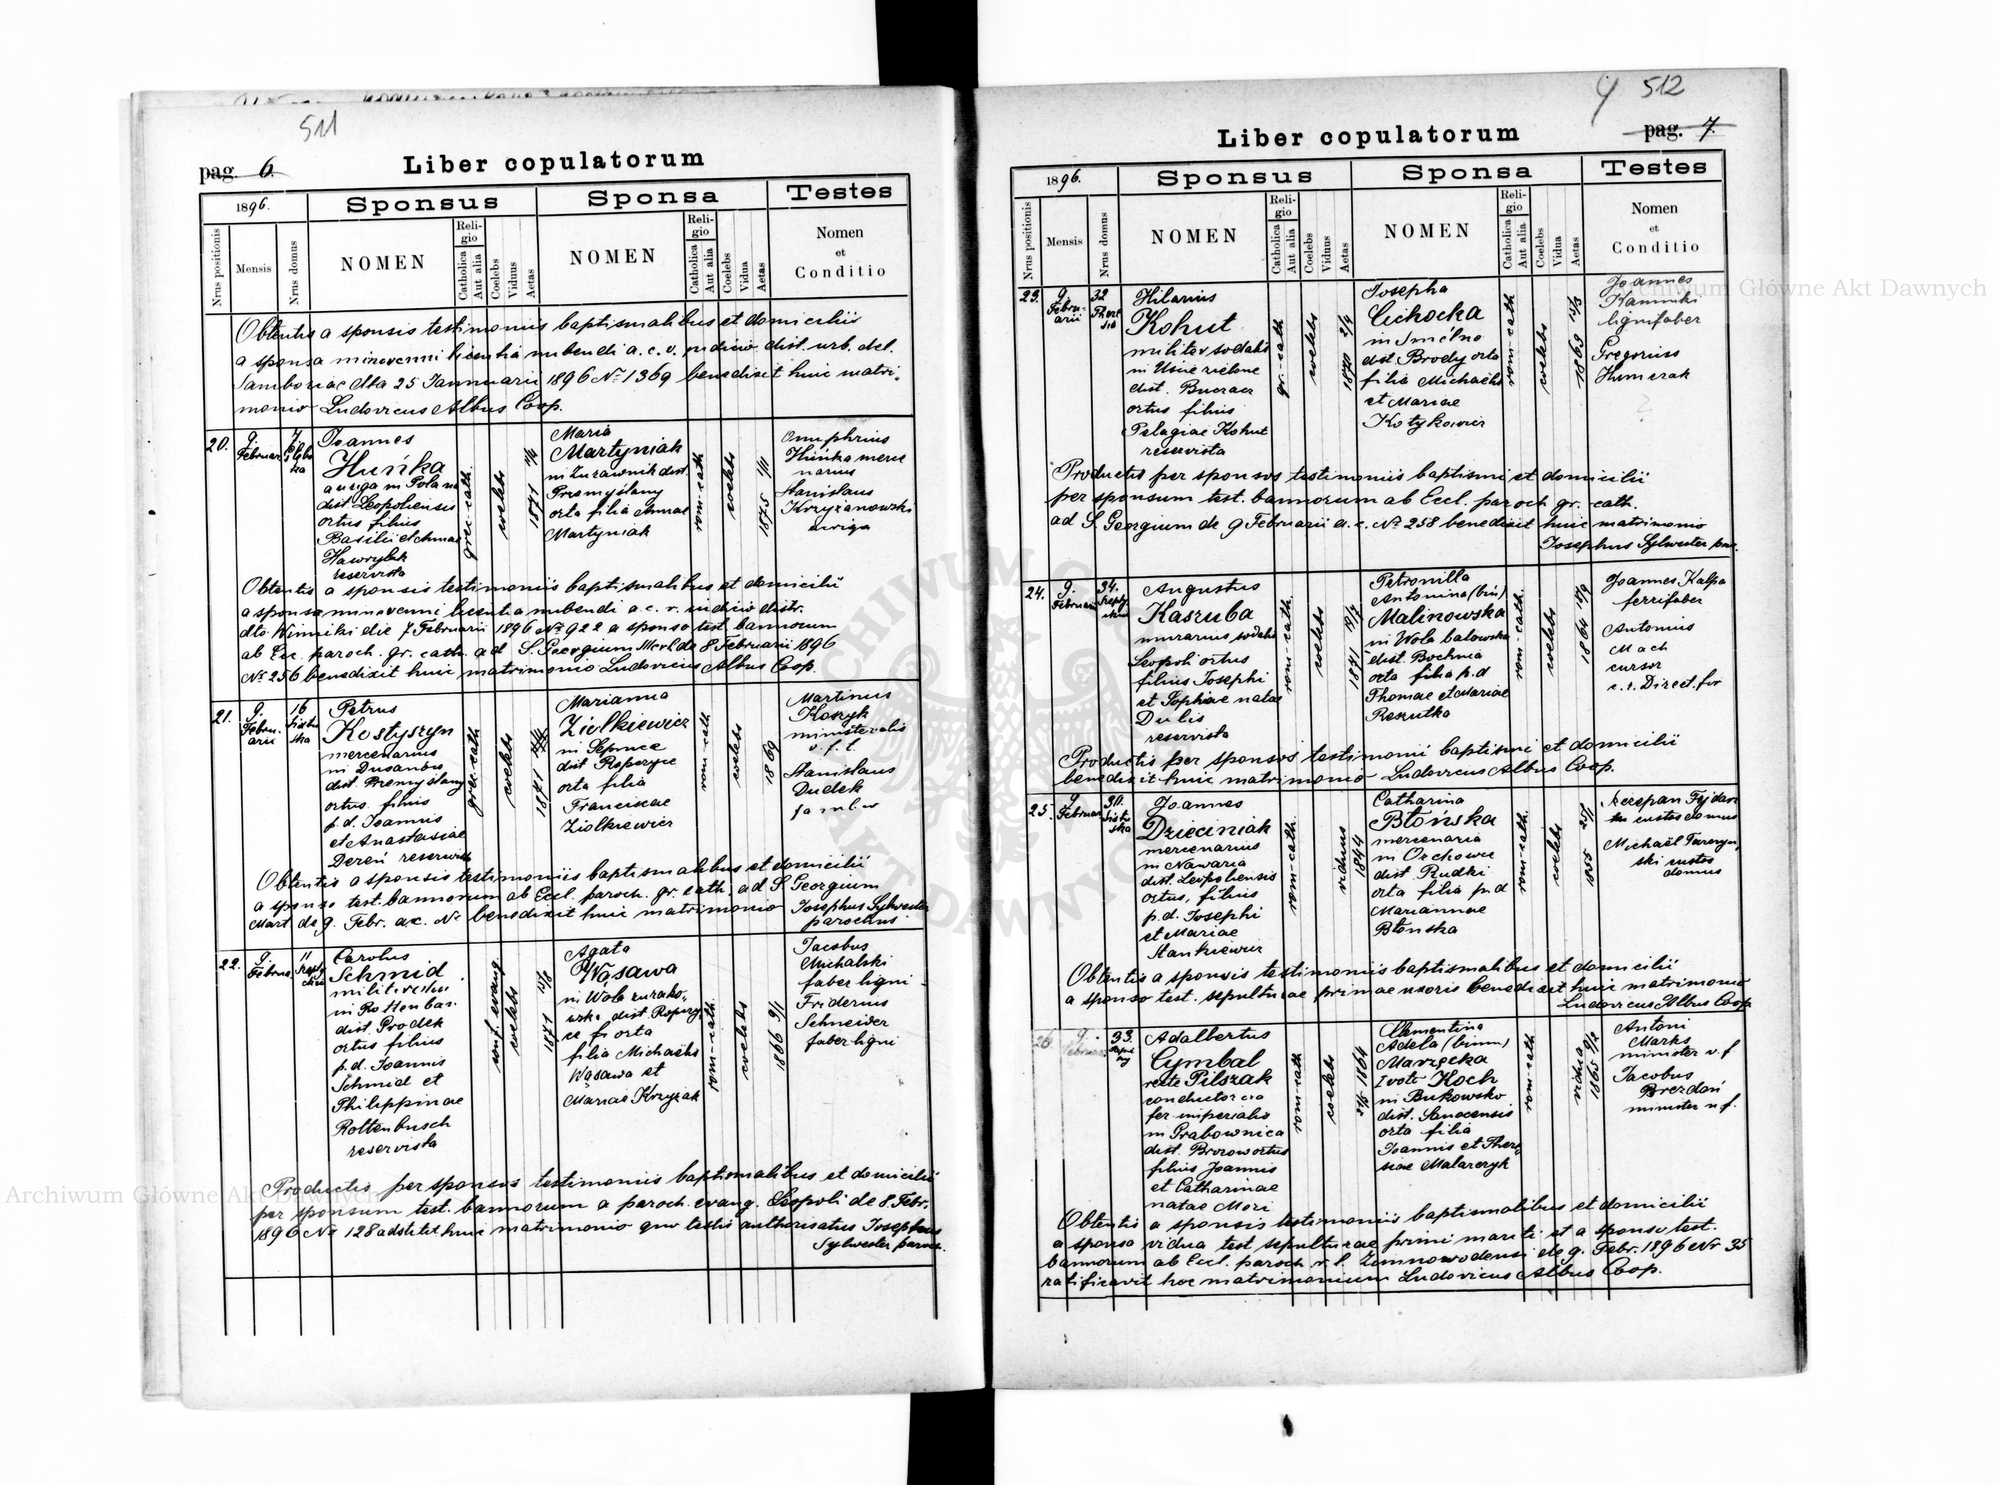 511
pag. 6.
Liber copulatorum
1896.
Sponsus
Sponsa
Testes
Nrus positionis
Mensis
Nrus domus
NOMEN
Religio
Catholica
Aut alia
Coelebs
Viduus
Aetas
NOMEN
Religio
Catholica
Aut alia
Coelebs
Vidua
Aetas
Nomen
et
Conditio
Obtentis a sponsis testimoniis baptismalibus et domicilii
a sponsa minorenni licentia nubendi a. c. v. judicio dist. urb. del.
Samboriae dta 25 Januarii 1896 No 1369 benedixit huic matri-
monio Ludovicus Albus Coop.
20.
9.
Februar
Joannes
Huńka
auriga in Polana
dist. Leopoliensis
ortus filius
Basilii et Annae
Hawrylak
reservista
grec-cath.
coelebs
1871
Maria
Martyniak
in Zurawnik dist.
Przemyślany
orta filia Annae
Martyniak
rom-cath
coelebs
1875 1/11
Onuphrius
Huńka merce
narius
Stanislaus
Krzyżanowski
auriga
Obtentis a sponsis testimoniis baptismalibus et domicilii
a sponsa minorenni licentia nubendi a. c. r. iudicio distr.
dto Winniki die 7 Februarii 1896 No 922 a sponso test. bannorum
ab Ecc. paroch. gr. cath. ad S. Georgium Mart. de 8 Februarii 1896
No 256 benedixit huic matrimonio Ludovicus Albus Coop.
21.
9.
Febru-
arii
16
Petrus
Kostyszyn
mercenarius
in Dusanow
dist. Premyślany
ortus filius
p. d. Joannis
et Anastasiae
Dereń reservista
grec-cath
coelebs
1871
Marianna
Ziolkiewicz
in Sepnice
dist Ropczyce
orta filia
Franciscae
Ziolkiewicz
rom-cath
coelebs
1869
Martinus
Koszyk
ministerialis
v. f. f.
Stanislaus
Dudek
Obtentis a sponsis testimoniis baptismalibus et domicilii
a sponso test. bannorum ab Eccl. paroch. gr. cath. ad S. Georgium
Mart. de 9. Febr. a.c. No benedixit huic matrimonio Josephus Sylwester
parochus
22.
9.
Februa.
11
Carolus
Schmid
in Rottenbas.
dist. Prodek
ortus filius
p. d. Joannis
Schmid et
Philippinae
Rottenbusch
reservista
conf. evang.
coelebs
1871 15/8
Agata
Wąsawa
in Wola zurako-
wska dist. Ropczy
ce fi orta
filia Michaelis
Wąsawa et
Mariae Krzyżak
rom-cath
coelebs
1866 9/1
Jacobus
Michalski
faber ligni
Fridericus
Schneider
faber ligni
Productis per sponsos testimoniis baptismalibus et domicilii
per sponsum test. bannorum a paroch. evang. Leopoli de 8 Febr.
1896 No 128 adstitit huic matrimonio qua testis authorisatus Josephus
Sylwester paroch.
512
pag. 7.
Liber copulatorum
1896.
Sponsus
Sponsa
Testes
Nrus positionis
Mensis
Nrus domus
NOMEN
Religio
Catholica
Aut alia
Coelebs
Viduus
Aetas
NOMEN
Religio
Catholica
Aut alia
Coelebs
Vidua
Aetas
Nomen
et
Conditio
23.
9.
Febru-
arii
32
Hilarius
Kohut
militer sodalis
in Uscie zielone
dist. Buczacz
ortus filius
Pelagiae Kohut
reservista
gr.-cath
coelebs
1870 2/9
Josepha
Cichocka
in Smólno
dist Brody orta
filia Michaelis
et Mariae
Kotykowicz
rom-cath
coelebs
1863 13/3
Joannes
Kaminski
lignifaber
Gregorius
Humerak
Productis per sponsos testimoniis baptismi et domicilii
per sponsum test. bannorum ab Eccl. paroch gr. cath.
ad S. Georgium de 9 Februarii a. c. No 258 benedixit huic matrimonio
Josephus Sylwester par.
24.
9.
Februarii
34.
Augustus
Kasruba
murarius sodalis
Leopoli ortus
filius Josephi
et Sophiae natae
Dulis
reservista
rom-cath.
coelebs
1871 19/7
Petronilla
Antonina (bin)
Malinowska
in Wola batowska
dist. Bochnia
orta filia p.d
Thomae et Mariae
Reszutka
rom-cath.
coelebs
1864 17/9
Joannes Kalpa
ferrifaber
Antonius
Mach
cursor
c. r. Direct. for
Productis per sponsos testimonii baptismi et domicilii
benedixit huic matrimonio Ludovicus Albus Coop.
25.
9
Februar
30.
Joannes
Dzieciniak
mercenarius
in Nawaria
dist. Leopoliensis
ortus, filius
p.d. Josephi
et Mariae
Stankiewicz
rom-cath.
viduus
1844
Catharina
Błońska
mercenaria
in Orchowice
dist. Rudki
orta filia p.d
Mariannae
Błonska
rom-cath.
coelebs
1855 25/1
Szczepan Fejdas
custos domus
Michaël Tarczyn
ski custos
domus
Obtentis a sponsis testimoniis baptismalibus et domicilii
a sponso test. sepulturae primae uxoris benedixit huic matrimonio
Ludovicus Albus Coop
26.
9.
Februar
33.
Adalbertus
Cymbal
recte Pilszak
conductor viae
fer. imperialis
in Grabownica
dist. Brozow ortus
filius Joannis
et Catharinae
natae Mori
rom-cath
coelebs
1864
Clementina
Adela (binom)
Marzecka
1 voti Koch
in Bukowsko
dist. Sanocensis
orta filia
Joannis et There
siae Malarczyk
rom-cath
vidua
1865
Antoni
Marks
minister v. f
Jacobus
Brezdoń
minister v. f.
Obtentis a sponsis testimoniis baptismalibus et domicilii
a sponsa vidua test sepulturae primi mariti et a sponso test.
bannorum ab Eccl. paroch r. l. Zimnowodensi de 9. Febr. 1896 Nr 35
ratificavit hoc matrimonium Ludovicus Albus Coop.
Archiwum Główne Akt Dawnych
Archiwum Główne Akt Dawnych
ARCHIWUM GŁÓWNE AKT DAWNYCH